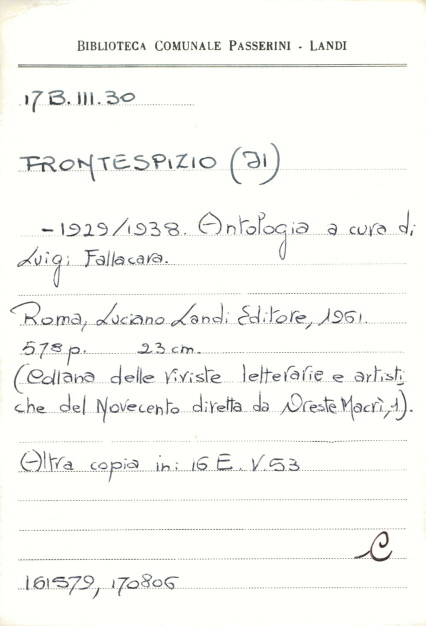 BIBLIOTECA COMUNALE PASSERINI - LANDI
17 B. III. 30
FRONTESPIZIO (Il)
- 1929/1938. Antologia a cura di
Luigi Fallacara.
Roma, Luciano Landi Editore, 1961.
578 p. 23 cm.
(Collana delle riviste letterarie e artisti
che del Novecento diretta da Oreste Macrì, 1).
Altra copia in: 16 E. V. 53
C
161579, 170806